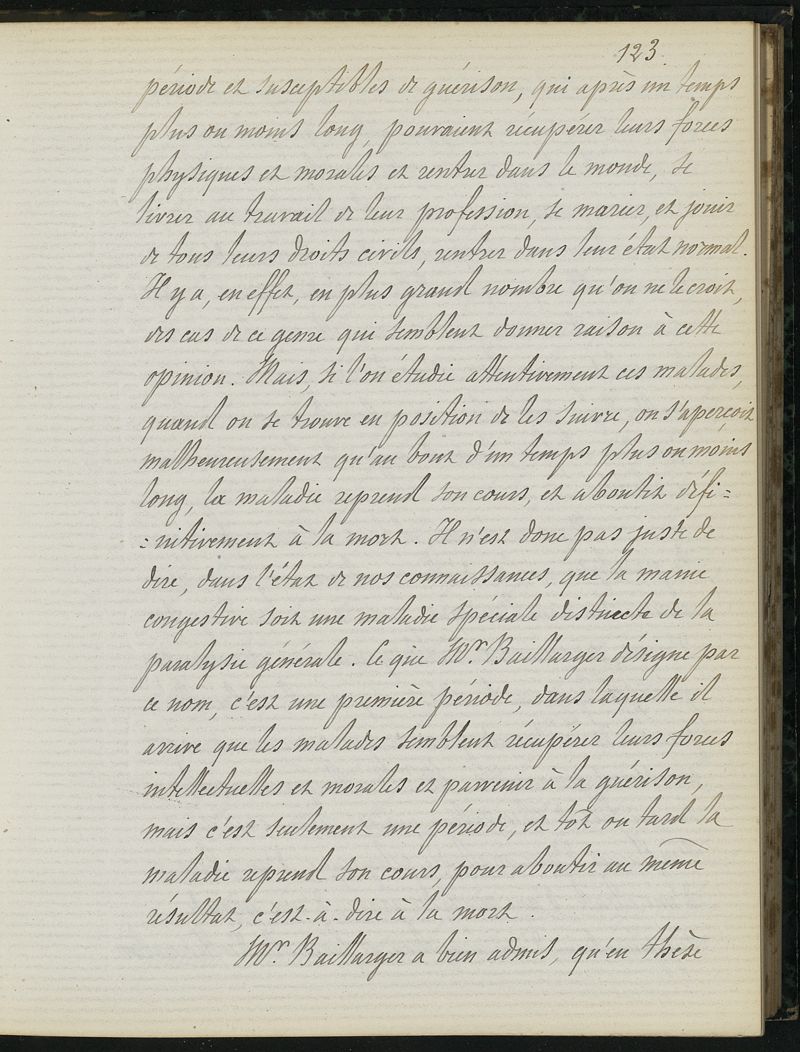 123
période et susceptibles de guérison, qui après un temps
plus ou moins long, pouvaient récupérer leurs forces
physiques et morales et rentrer dans le monde, se
livrer au travail de leur profession, se marier, et jouir
de tous leurs droits civils, rentrer dans leur état normal.
Il y a, en effet, en plus grand nombre qu'on ne le croit,
des cas de ce genre qui semblent donner raison à cette
opinion. Mais, si l'on étudie attentivement ces malades,
quand on se trouve en position de les suivre, on s'aperçoit
malheureusement qu'au bout d'un temps plus ou moins
long, la maladie reprend son cours, et aboutit défi=
=nitivement à la mort. Il n'est donc pas juste de
dire, dans l'état de nos connaissances, que la manie
congestive soit une maladie spéciale distincte de la
paralysie générale. Ce que Mr. Baillarger désigne par
ce nom, c'est une première période, dans laquelle il
arrive que les malades semblent récupérer leurs forces
intellectuelles et morales et parvenir à la guérison,
mais c'est seulement une période, et tôt ou tard la
maladie reprend son cours, pour aboutir au même
résultat, c'est-à-dire à la mort.
Mr. Baillarger a bien admis, qu'en thèse